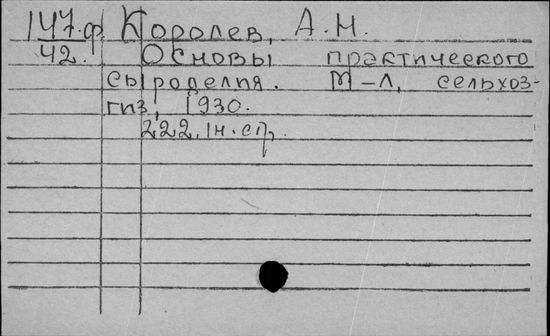 147.ф Королев, А.Н.
42. Основы практического
сыроделия. М-Л, сельхоз-
гиз, 1930.
222, 1н. стр.